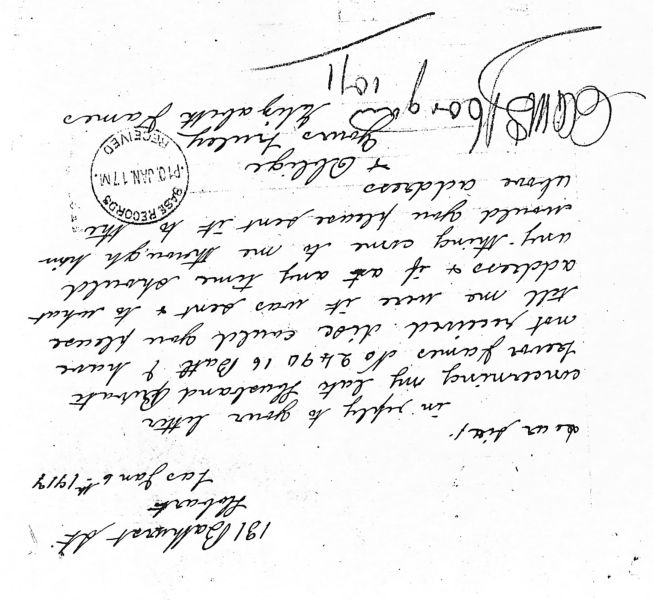 191 Bathurst St
Hobart
Tas Jan 6th 1917
dear sir,
in reply to your letter
concerning my late Husband Private
Trevor James No 2490 16 Batt I have
not received disc. could you please
tell me were it was sent & to what
address & if at any time should
any thing come to me through him
would you please sent it to the
above address
& Oblige
Yours truley
Elizabeth James
BASE RECORDS
P10.JAN.17M.
RECEIVED
10/1